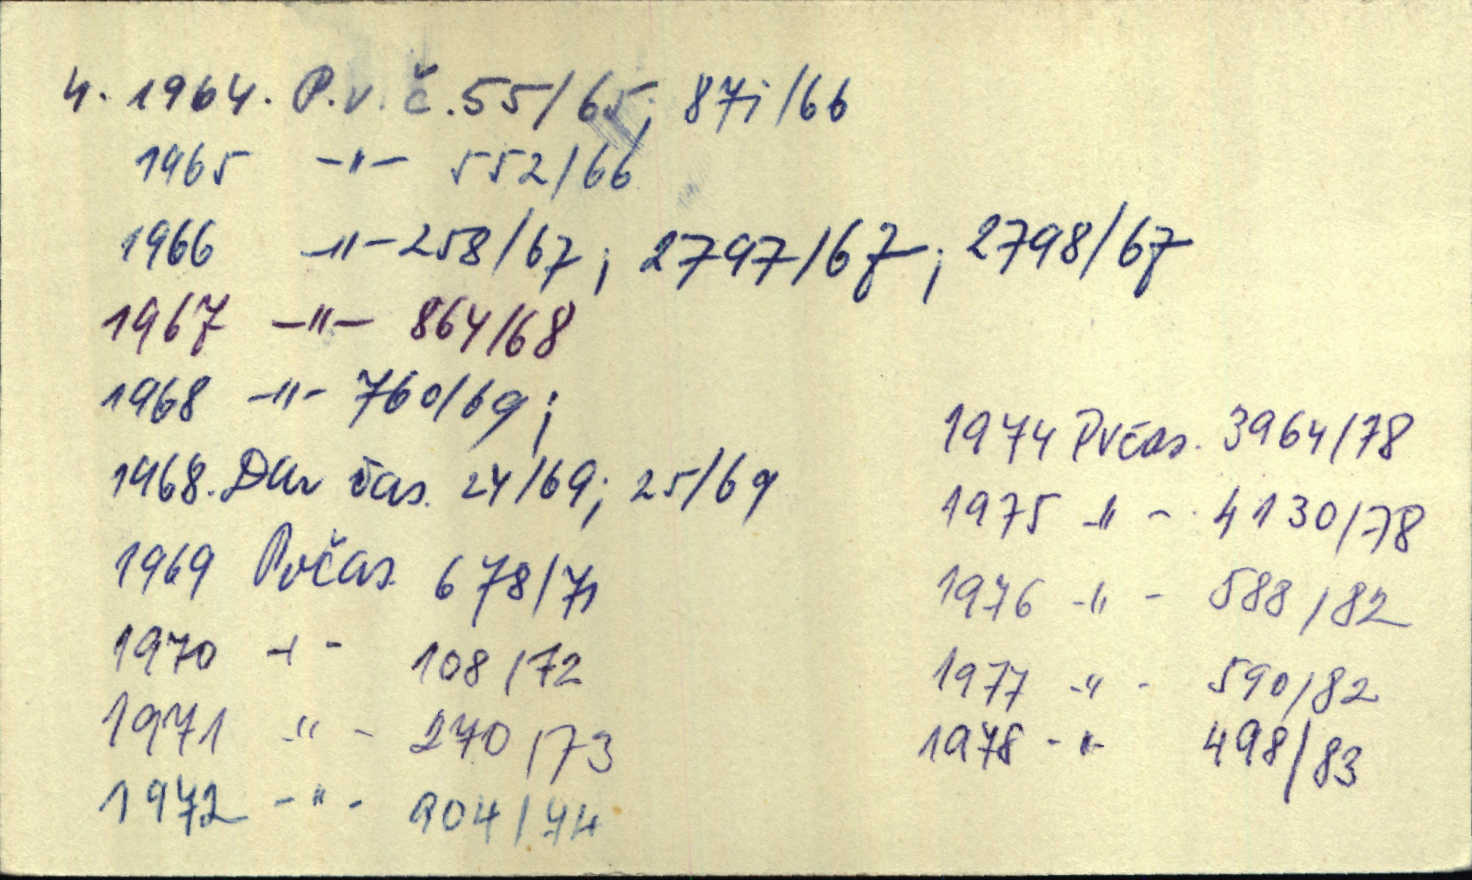 4. 1964. P.v. č. 55/65; 871/66
1965 -"- 552/66
1966 -"- 258/67; 2797/67; 2798/67
1967 -"- 864/68
1968 -"- 760/69;
1968. Dar čas. 24/69; 25/69
1969 Pvčas. 678/71
1970 -"- 108/72
1971 -"- 270/73
1972 -"- 904/74
1974 Pvčas. 3964/78
1975 -"- 4130/78
1976 -"- 588/82
1977 -"- 590/82
1978 -"- 498/83